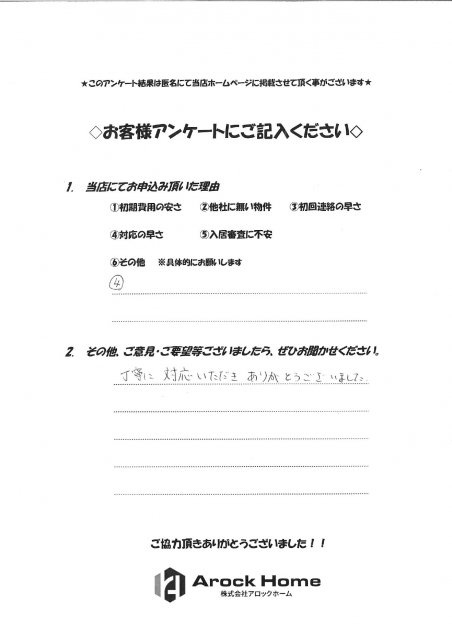 ★このアンケート結果は匿名にて当店ホームページに掲載させて頂く事がございます★
◇お客様アンケートにご記入ください◇
1. 当店にてお申込み頂いた理由
①初期費用の安さ ②他社に無い物件 ③初回連絡の早さ
④対応の早さ ⑤入居審査に不安
⑥その他 ※具体的にお願いします
④
2. その他、ご意見・ご要望等ございましたら、ぜひお聞かせください。
丁寧に対応いただきありがとうございました。
ご協力頂きありがとうございました！！
Arock Home
株式会社アロックホーム